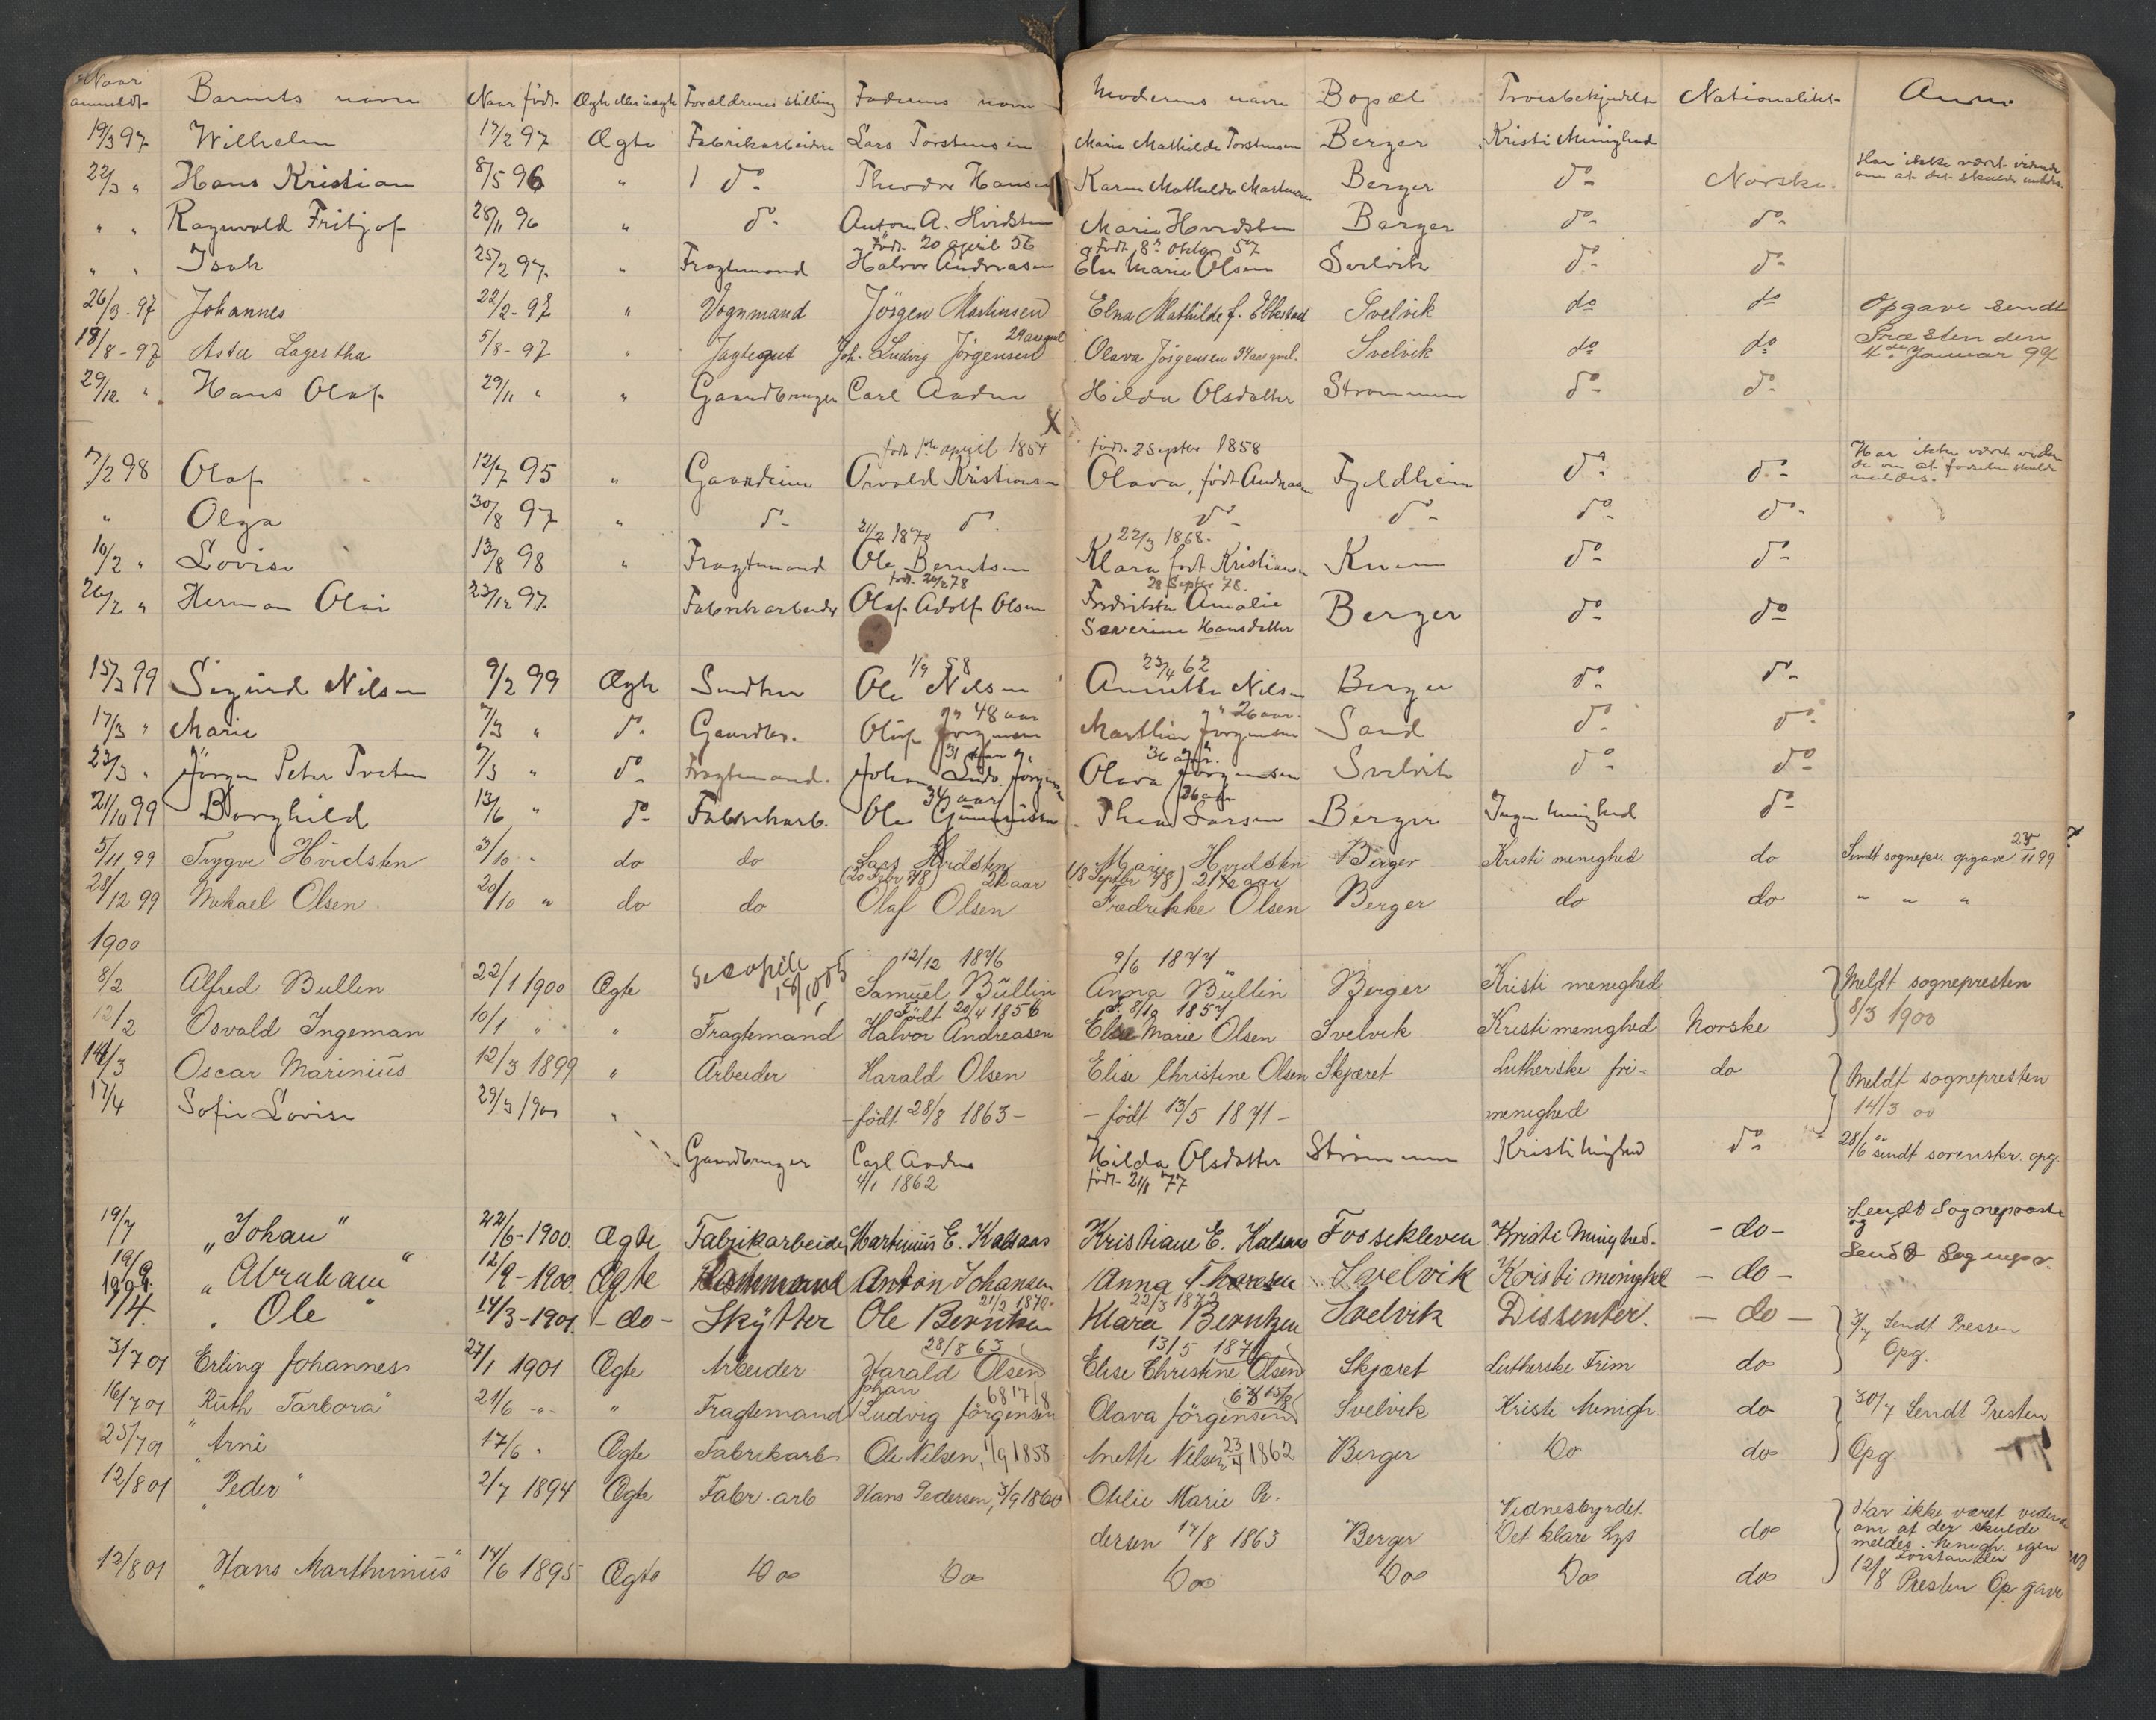 Naar anmeldt Barnets navn Naar født Ægte eller uægte Forældrenes stilling Faderens navn Moderens navn Bopæl Troesbekjendelse Nationalitet Anm.
19/3 97 Wilhelm 17/2 97 Ægte Fabrikarbeider Lars Torstensen Marie Mathilde Torstensen Berger Kristi Menighed
22/3 " Hans Kristian 8/5 96 " do Theodor Hansen Karen Mathilde Berger do Norske. Har ikke været vidende om at det skulde meldes.
" " Ragnvald Fritjof 28/11 96 " do Anton A. Hvidsten Marie Hvidsten Berger do do
født 20 april 56 født 8de oktbr 57
" " Isak 25/2 97 " Fragtemand Halvor Andreasen Else Marie Olsen Svelvik do do
26/3-97 Johannes 22/2-97 " Vognmand Jörgen Martinsen Elna Mathilde f. Svelvik do do Opgave sendt
29 aar gml
18/8-97 Asta Lagertha 5/8-97 " Jagtegut Joh. Ludvig Jörgensen Olava Jörgensen 34 aar gml. Svelvik do do Præsten den 4de Januar 98
29/12 " Hans Olaf 29/11 " " Gaardbruger Carl Andrae Hilda Olsdatter Strømmen do do
X
født 1ste april 1854 født 2 Septbr 1858
7/2 98 Olaf 12/7 95 " Osvald Kristiansen Olava, født Andreasen Fjeldheim do do Har ikke været vidende om at fødselen skulde meldes.
" Olga 30/8 97 " do do do do do do
21/2 1870 22/3 1868.
10/2 " Lovise 13/8 98 " Fragtemand Ole Berntsen Klara født Kristiansen do do
født 78 28 Septbr 78.
26/2 " Herman Olai 23/12 97 Fabrikarbeider Olaf Adolf Olsen Fredrikke Amalie Severine Hansdatter Berger do do
1/9 58 23/4 62
15/3 99 Sigurd Nilsen 9/2 99 Ægte Ole Nilsen Annette Nilsen Berger do do
48 aar 26 aar.
17/3 " Marie 7/3 " do Gaardbr. Oluf Jorgensen Marthine Jorgensen Sand do do
31 aar g. 36 aar.
23/3 " Jörgen Peter 7/3 " do Fragtemand. Johan Ludv. Jörgensen Olava Jørgensen Svelvik do do
34 aar 26 aar
21/10 99 Borghild 13/6 " do Fabrikarb. Ole Thea Larsen Berger Ingen menighed do
5/11 99 Trygve Hvidsten 3/10 " do do Lars Hvidsten Marie Hvidsten Berger Kristi menighed do Sendt sognepr. opgave 25/11 99
(20 Febr 78) 21 aar (18 Septbr 78) 21 1/2 aar
28/12 99 Mikael Olsen 20/10 " do do Olaf Olsen Fredrikke Olsen Berger do do " " "
1900
12/12 1876 9/6 1877
8/2 Alfred Bullen 22/1 1900 Ægte Samuel Büllin Anna Büllin Berger Kristi menighed Meldt sognepresten
Født 20/4 1856 F. 8/10 1857
12/2 Osvald Ingeman 10/1 " " Fragtemand Halvor Andreasen Else Marie Olsen Svelvik Kristi menighed Norske 8/3 1900
14/3 Oscar Marinius 12/3 1899 " Arbeider Harald Olsen Elise Christine Olsen Skjæret Lutherske fri- do Meldt sognepresten
17/4 Sofie Lovise 29/3 1900 " -født 28/8 1863- -født 13/5 1871- menighed 14/3 00
Gaardbruger Carl Andrae Hilda Olsdatter Strømmen Kristi Mnghed do 28/6 00 sendt sorenskr. opg.
4/1 1862 født 21/1 77
19/7 "Johan" 22/6-1900. Ægte Fabrikarbeider Martinius E. Kalsaas Kristiane E. Kalsaas Fossekleven Kristi Minghed. -do- Sendt Sognepræsten
19/9 "Abraham" 12/9-1900 Ægte Anton Johansen Anna Thoresen Svelvik Kristi minghed -do- Sendt Sognepr.
1901.
21/2 1870. 22/3 1872
1/4. "Ole" 14/3-1901. -do- Skÿtter Ole Berntzen Klara Berntzen Svelvik Dissenter. -do-
28/8 63 13/5 1871
3/7 01 Erling Johannes 27/1 1901 Ægte Arbeider Harald Olsen Elise Christine Olsen Skjæret Lutherske Frim do 3/7 Sendt Presten Opg.
Johan 68 17/8 67 15/8
16/7 01 "Ruth Tarbora" 21/6 -"- " Fragtemand Ludvig Jörgensen Olava Jörgensen Svelvik Kristi Menigh. do 30/7 Sendt Presten
25/7 01 "Arne 17/6 " Ægte Fabrikarb Ole Nilsen, 1/9 1858 Anette Nilsen 23/4 1862 Berger Do do Opg.
12/8 01 "Peder" 2/7 1894 Ægte Fabr. arb Hans Pedersen, 3/9 1860 Otilie Marie Pe-
dersen 17/8 1863 Berger Vidnesbyrdet Det klare Lys do Har ikke været vidende om at der skulde meldes. Menigh. egen Forstander
12/8 01 "Hans Marthinius" 14/6 1895 Ægte Do Do Do Do Do do 12/8 Presten Opgave